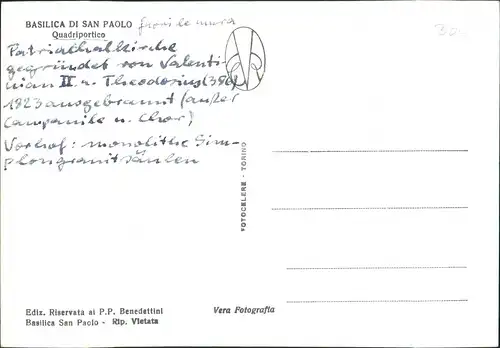 BASILICA DI SAN PAOLO fuori le mura
Quadriportico
Patriarchalkirche
gegründet von Valenti-
nian II u. Theodorius (386)
1823 ausgebrannt (außer
Campanile u. Chor)
Vorhof: monolithe Sim-
plongranitsäulen
FOTOCELERE - TORINO
Ediz. Riservata ai P.P. Benedettini
Basilica San Paolo - Rip. Vietata
Vera Fotografia